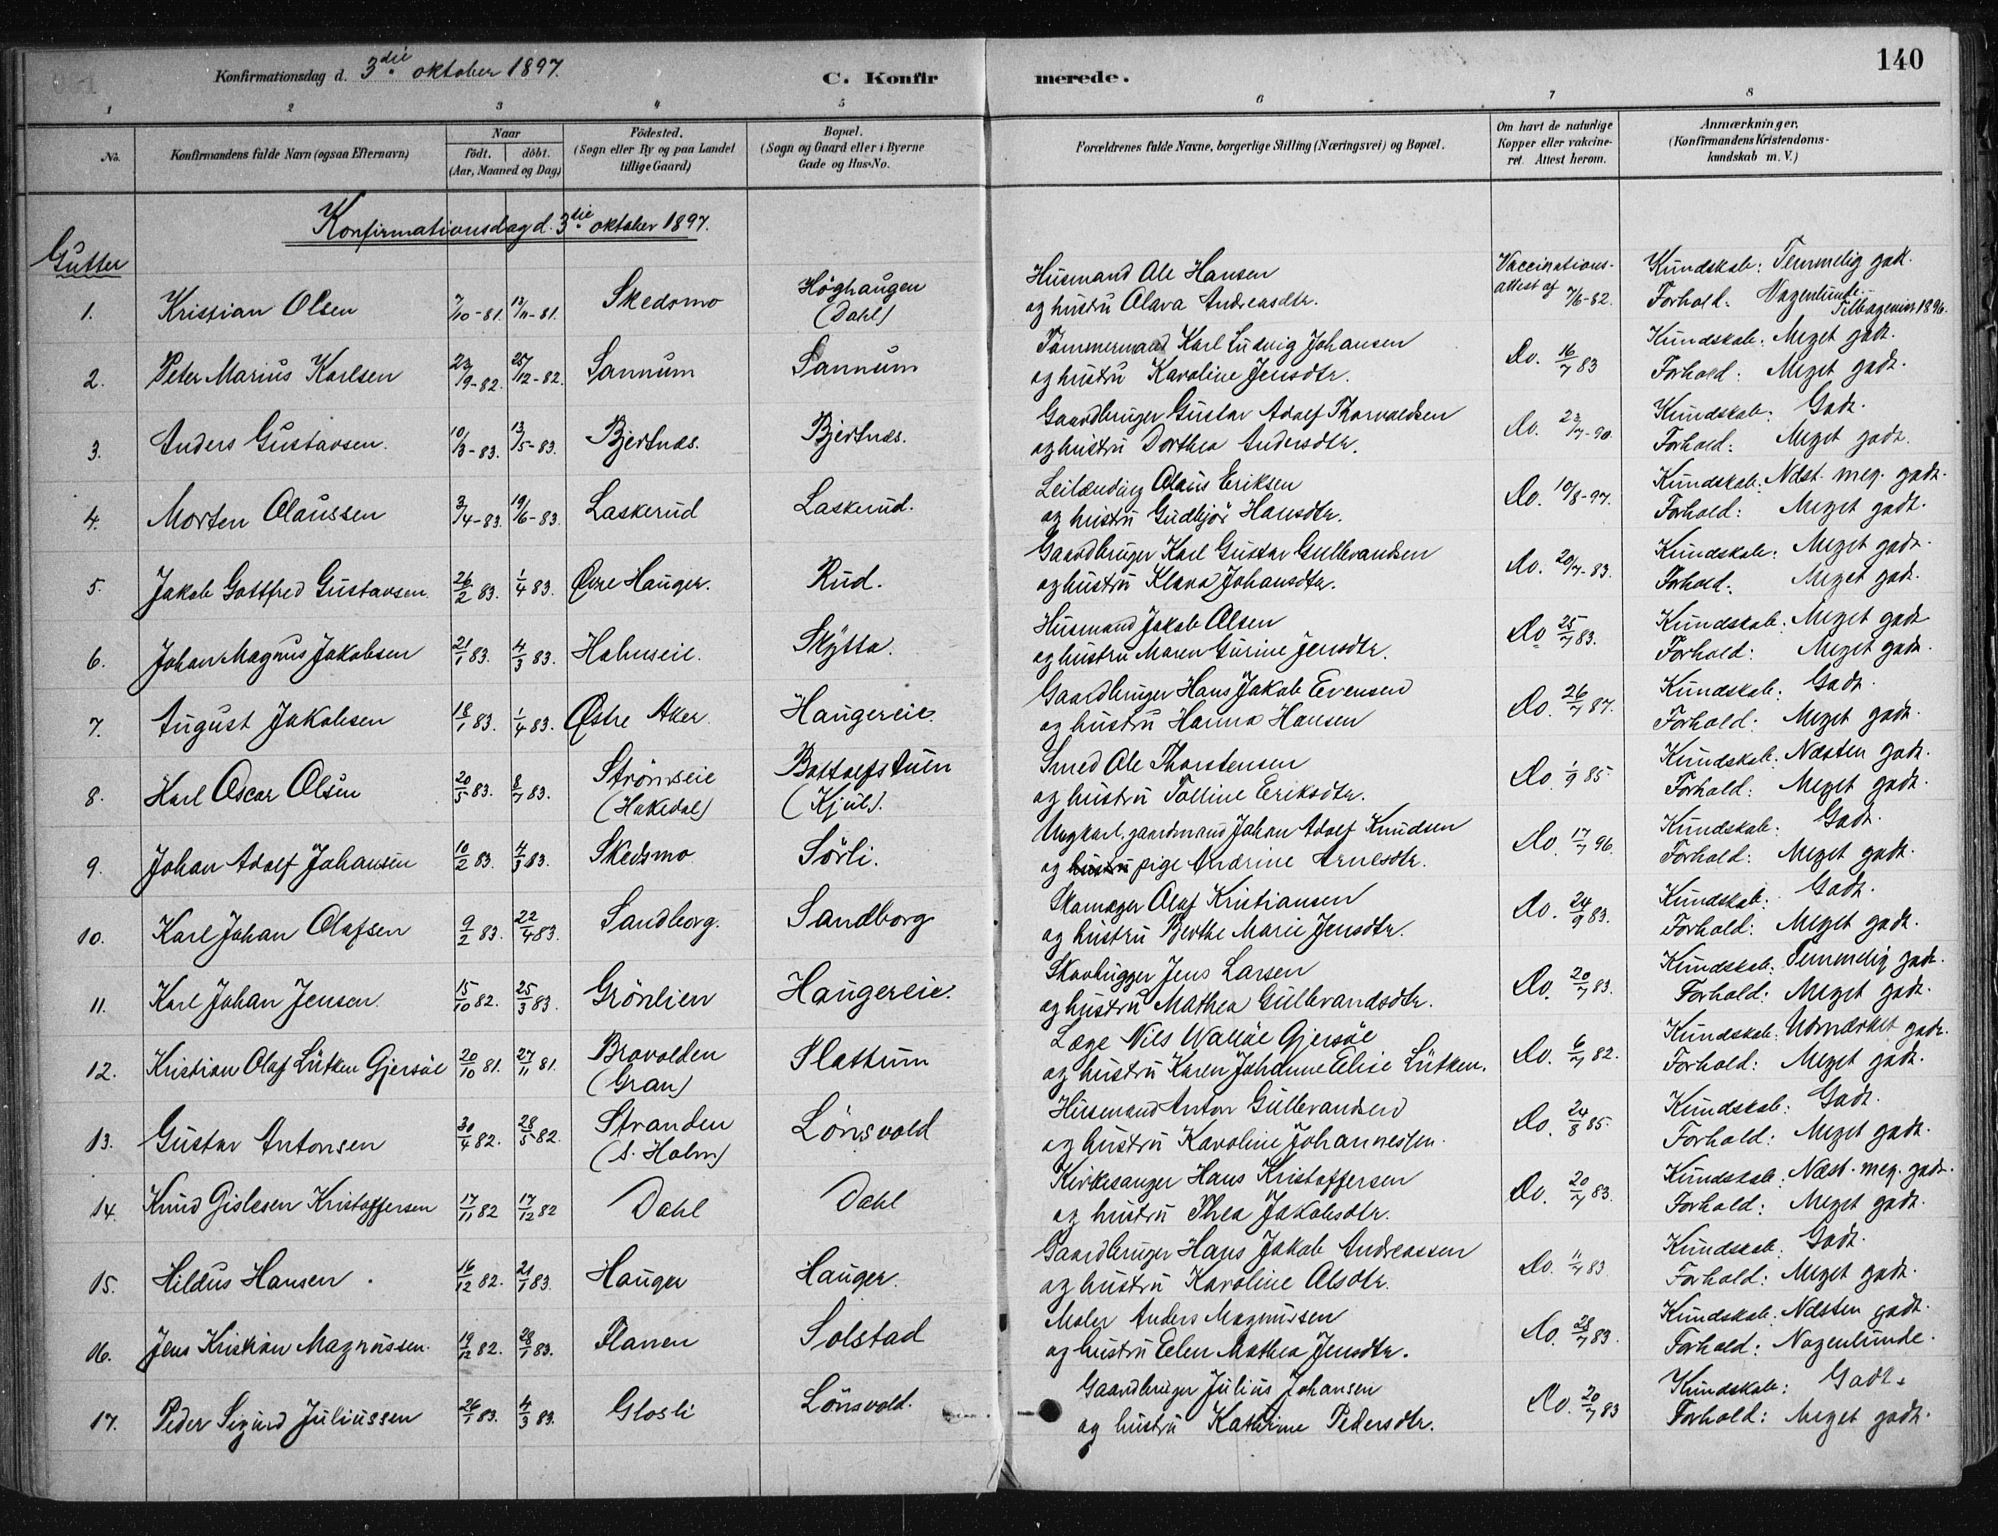 140
Konfirmationsdag d. 3die oktober 1897.
C. Konfirmerede.
1 2 3 4 5 6 7 8
No.
Konfirmandens fulde Navn (ogsaa Efternavn)
Naar
født. døbt.
(Aar, Maaned og Dag)
Fødested.
(Sogn eller By og paa Landet
tillige Gaard)
Bopæl.
(Sogn og Gaard eller i Byerne
Gade og Hus-No.
Forældrenes fulde Navne, borgerlige Stilling (Næringsvei) og Bopæl.
Om havt de naturlige
Kopper eller vakcine-
ret. Attest herom.
Anmærkninger.
(Konfirmandens Kristendoms-
kundskab m. V.)
Konfirmationsdag d. 3die oktober 1897.
Gutter
1. Kristian Olsen 7/10-81. 13/11-81. Skedsmo Höghaugen (Dahl)
Husmand Ole Hansen
og hustru Olava Andreasdtr.
Vaccinations-
attest af 7/6-82.
Kundskab: Temmelig godt.
Forhold: Nogenlunde. Tilbagevist 1896.
2. Peter Marius Karlsen 23/9-82. 25/12-82. Sannum Sannum
Tømmermand Karl Ludvig Johansen
og hustru Karoline Jensdtr.
Do. 16/7 83
Kundskab: Meget godt.
Forhold: Meget godt.
3. Anders Gustavsen. 10/3-83. 13/5-83. Bjertnæs. Bjertnæs.
Gaardbruger Gustav Adolf Thorvaldsen
og hustru Dorthea Andersdtr.
Do. 23/7-90.
Kundskab: Godt.
Forhold: Meget godt.
4. Morten Olaussen 3/4-83. 19/6-83. Laskerud Laskerud.
Leilænding Olaus Eriksen
og hustru Gudbjør Hansdtr.
Do. 10/8-97.
Kundskab: Næst. meg. godt.
Forhold: Meget godt.
5. Jakob Gottfred Gustavsen. 26/2 83. 1/4 83. Øvre Hauger. Rud.
Gaardbruger Karl Gustav Gulbrandsen
og hustru Klara Johansdtr.
Do. 20/7-83.
Kundskab: Meget godt.
Forhold. Meget godt.
6. Johan Magnus Jakobsen 21/1 83. 4/3 83. Holmseie. Skytta.
Husmand Jakob Olsen
og hustru Maren Gurine Jensdtr.
Do 25/7 83.
Kundskab: Meget godt
Forhold: Meget godt.
7. August Jakobsen 18/1 83. 1/4 83. Østre Aker. Haugereie.
Gaardbruger Hans Jakob Evensen
og hustru Hanna Hansen
Do. 26/7 87.
Kundskab: Godt.
Forhold: Meget godt.
8. Karl Oscar Olsen 20/5 83. 8/7 83. Strömseie (Hakedal) Boltolfstuen (Kjul).
Smed Ole Thorstensen
og hustru Talline Eriksdtr.
Do. 1/9 85.
Kundskab. Næsten godt.
Forhold: Meget godt.
9. Johan Adolf Johansen 10/2 83. 4/3 83. Skedsmo Sörli.
Ungkarl, gaardmand Johan Adolf Knudsen
og hustru pige Andrine Arnesdtr.
Do. 17/7 96.
Kundskab: Godt.
Forhold: Meget godt.
10. Karl Johan Olafsen 9/2 83. 22/4 83. Sandborg. Sandborg
Skomager Olaf Kristiansen
og hustru Berthe Marie Jensdtr.
Do. 24/9 83.
Kundskab: Godt.
Forhold: Meget godt.
11. Karl Johan Jensen. 15/10 82. 25/3 83. Grönlien Haugereie.
Skovhugger Jens Larsen
og hustru Mathea Gulbrandsdtr.
Do. 20/7 83.
Kundskab: Temmelig godt.
Forhold: Meget godt.
12. Kristian Olaf Lütken Gjersöe 20/10 81. 27/11 81. Bravolden (Gran) Slattum
Læge Nils Wallöe Gjersöe
og hustru Karen Johanne Elise Lütken.
Do. 6/7 82.
Kundskab: Udmærket godt.
Forhold: Meget godt.
13. Gustav Antonsen 30/4 82. 28/5 82. Stranden (S. Holm) Lönsvold
Husmand Anton Gulbrandsen
og hustru Karoline Johannessen.
Do. 24/8 85.
Kundskab: Godt.
Forhold: Meget godt.
14. Knud Gislesen Kristoffersen 17/11 82 17/12 82 Dahl Dahl
Kirkesanger Hans Kristoffersen
og hustru Thea Jakobsdtr.
Do. 20/7 83.
Kundskab: Næst. meg. godt.
Forhold: Meget godt.
15. Hildus Hansen. 16/12 82. 21/1 83. Hauger Hauger.
Gaardbruger Hans Jakob Andreassen
og hustru Karoline Olsdtr.
Do. 11/7 83
Kundskab. Godt.
Forhold: Meget godt.
16. Jens Kristian Magnussen. 19/12 82. 28/1 83. Flanen Solstad
Maler Anders Magnussen
og hustru Elen Mathea Jensdtr.
Do. 28/7 83.
Kundskab. Næsten godt.
Forhold: Nogenlunde.
17. Peder Sigurd Juliussen 26/1 83. 4/3 83. Glosli Lönsvold.
Gaardbruger Julius Johansen
og hustru Kathrine Pedersdtr.
Do. 20/7 83
Kundskab: Godt.
Forhold: Meget godt.